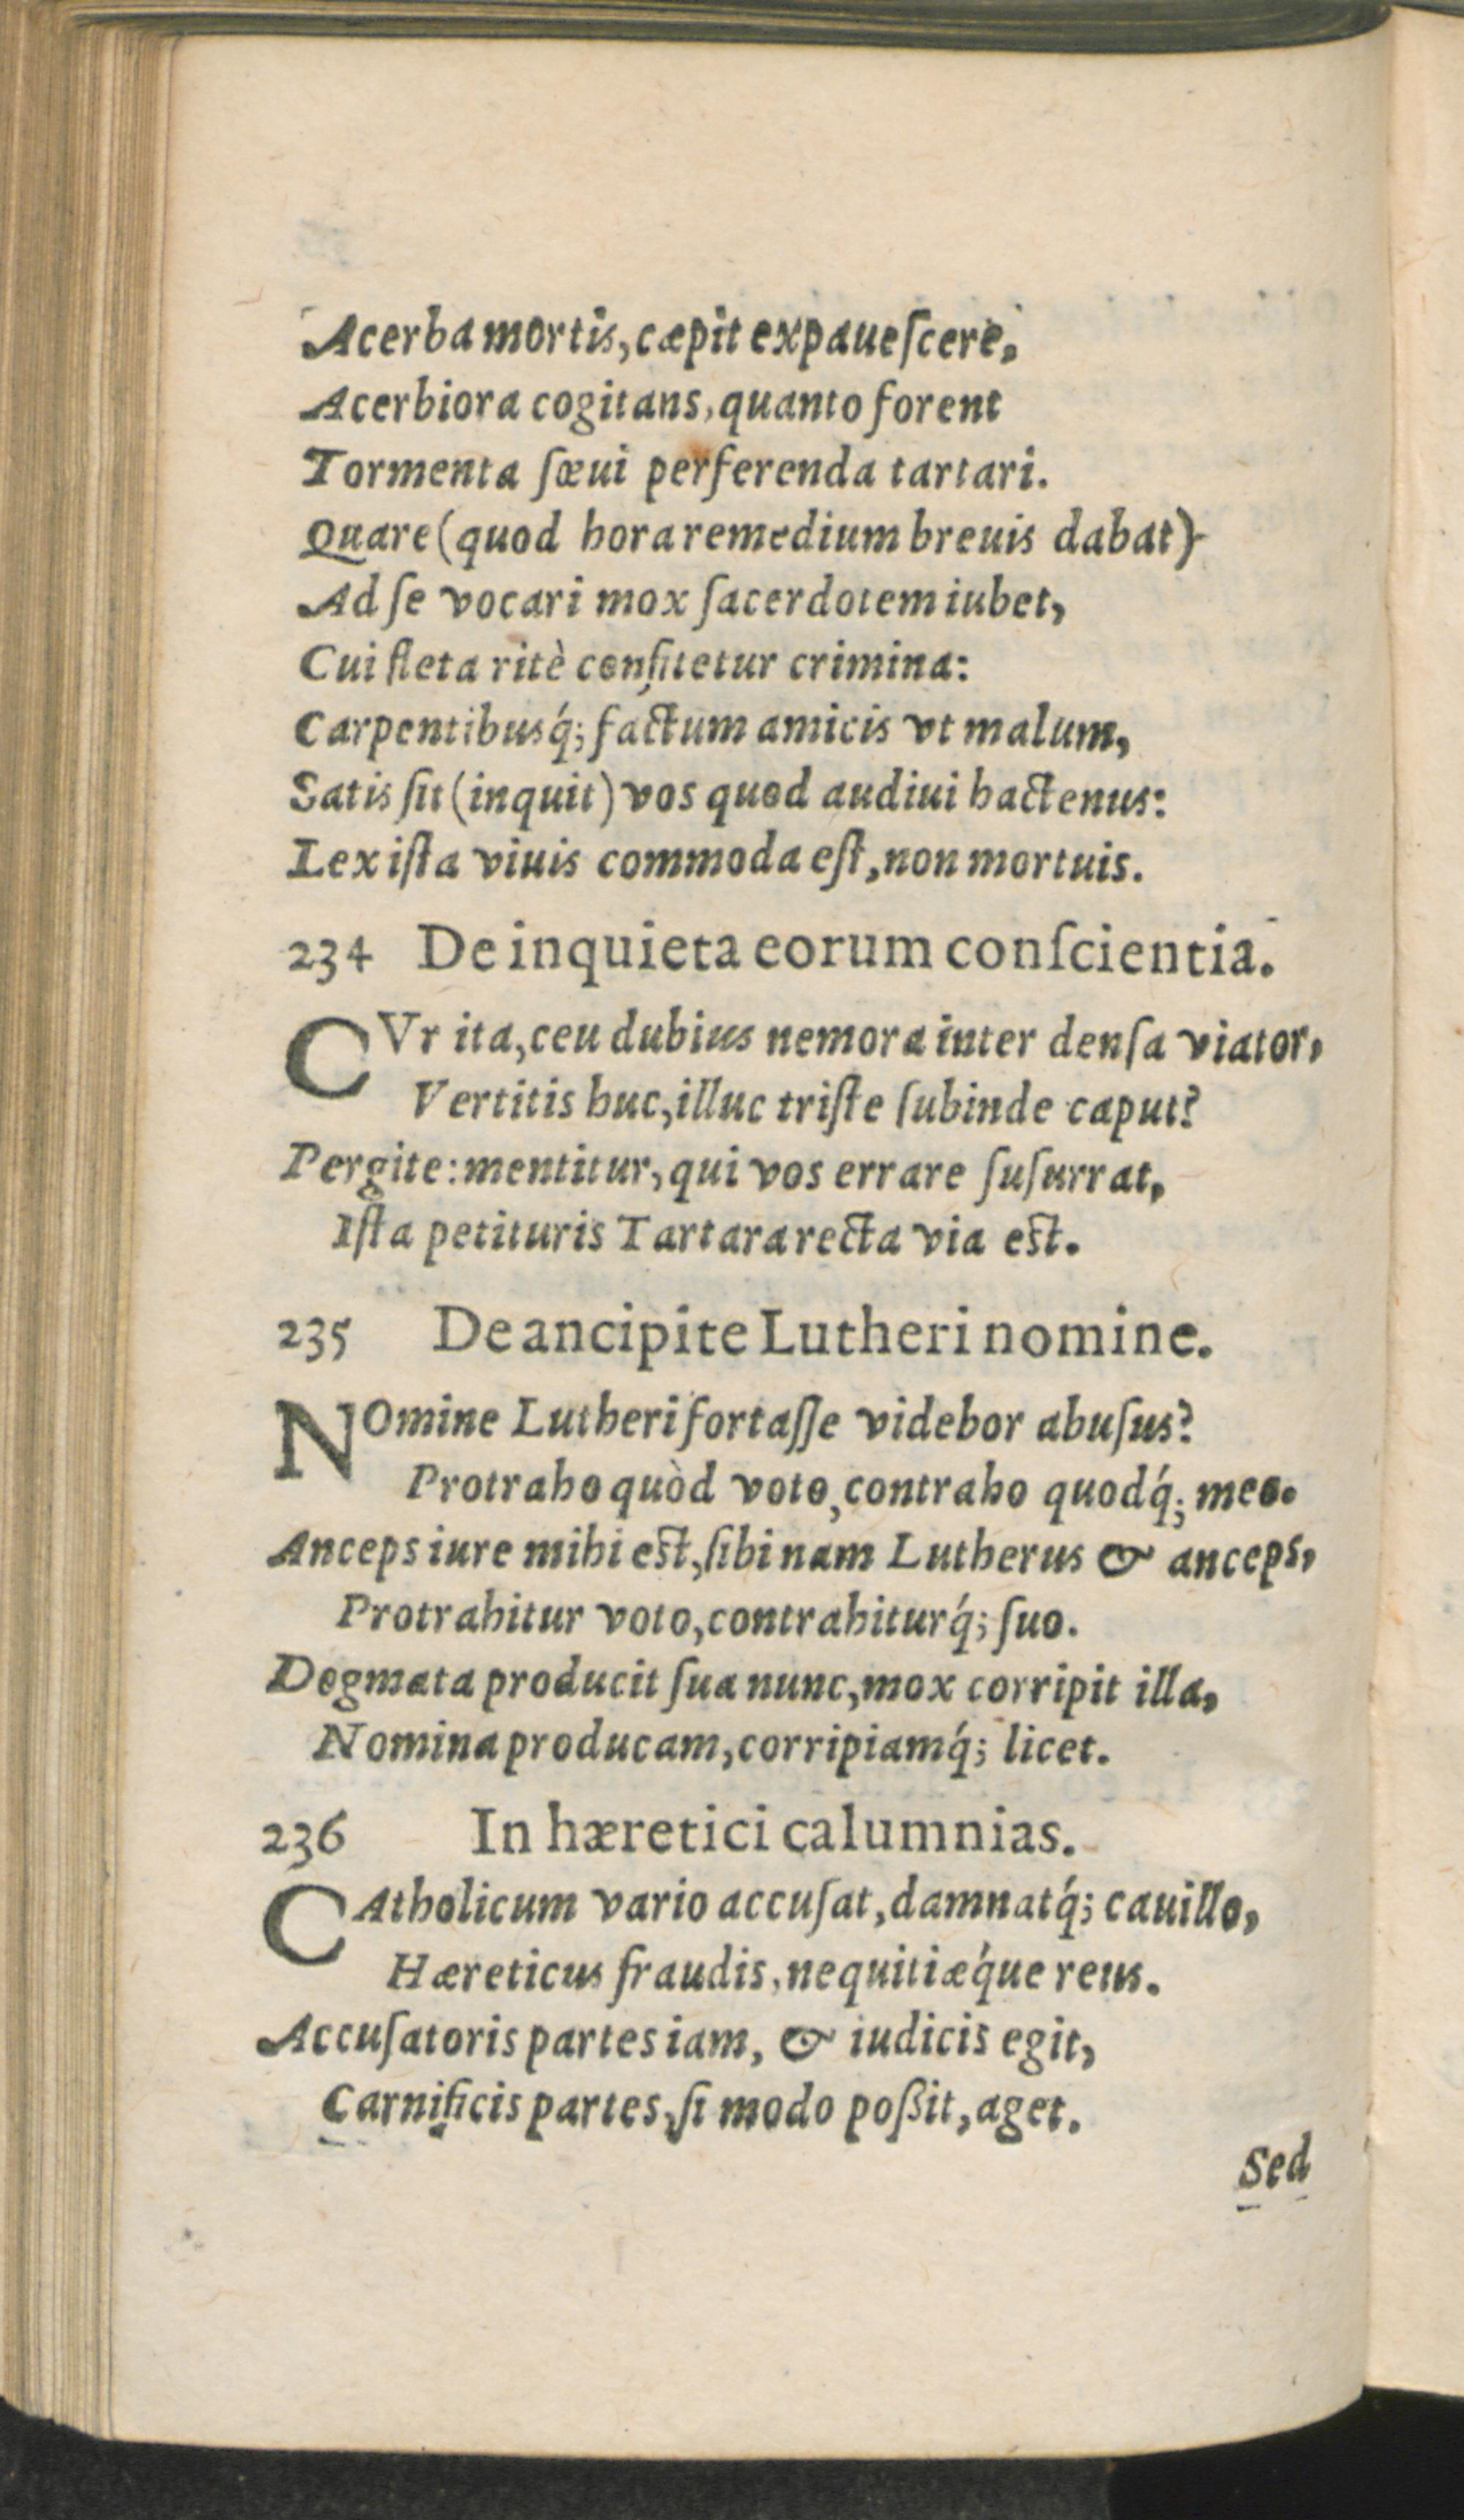 Acerba mortis, cœpit expaueſcere,
Acerbiora cogitans, quanto forent
Tormenta ſœui perferenda tartari.
Quare (quod hora remedium breuis dabat)
Ad ſe vocari mox ſacerdotem iubet,
Cui fleta ritè confitetur crimina:
Carpentibusq́; factum amicis vt malum,
Satis ſit (inquit) vos quod audiui hactenus:
Lex iſta viuis commoda eſt, non mortuis.
234 De inquieta eorum conſcientia.
CVr ita, ceu dubius nemora inter denſa viator,
Vertitis huc, illuc triſte ſubinde caput?
Pergite: mentitur, qui vos errare ſuſurrat,
Iſta petituris Tartara recta via eſt.
235 De ancipite Lutheri nomine.
NOmine Lutheri fortaſſe videbor abuſus?
Protraho quòd voto, contraho quodq́; meo.
Anceps iure mihi eſt, ſibi nam Lutherus & anceps,
Protrahitur voto, contrahiturq́; ſuo.
Dogmata producit ſua nunc, mox corripit illa,
Nomina producam, corripiamq́; licet.
236 In hæretici calumnias.
CAtholicum vario accuſat, damnatq́; cauillo,
Hæreticus fraudis, nequitiæq́ue reus.
Accuſatoris partes iam, & iudicis egit,
Carnificis partes, ſi modo poßit, aget.
Sed